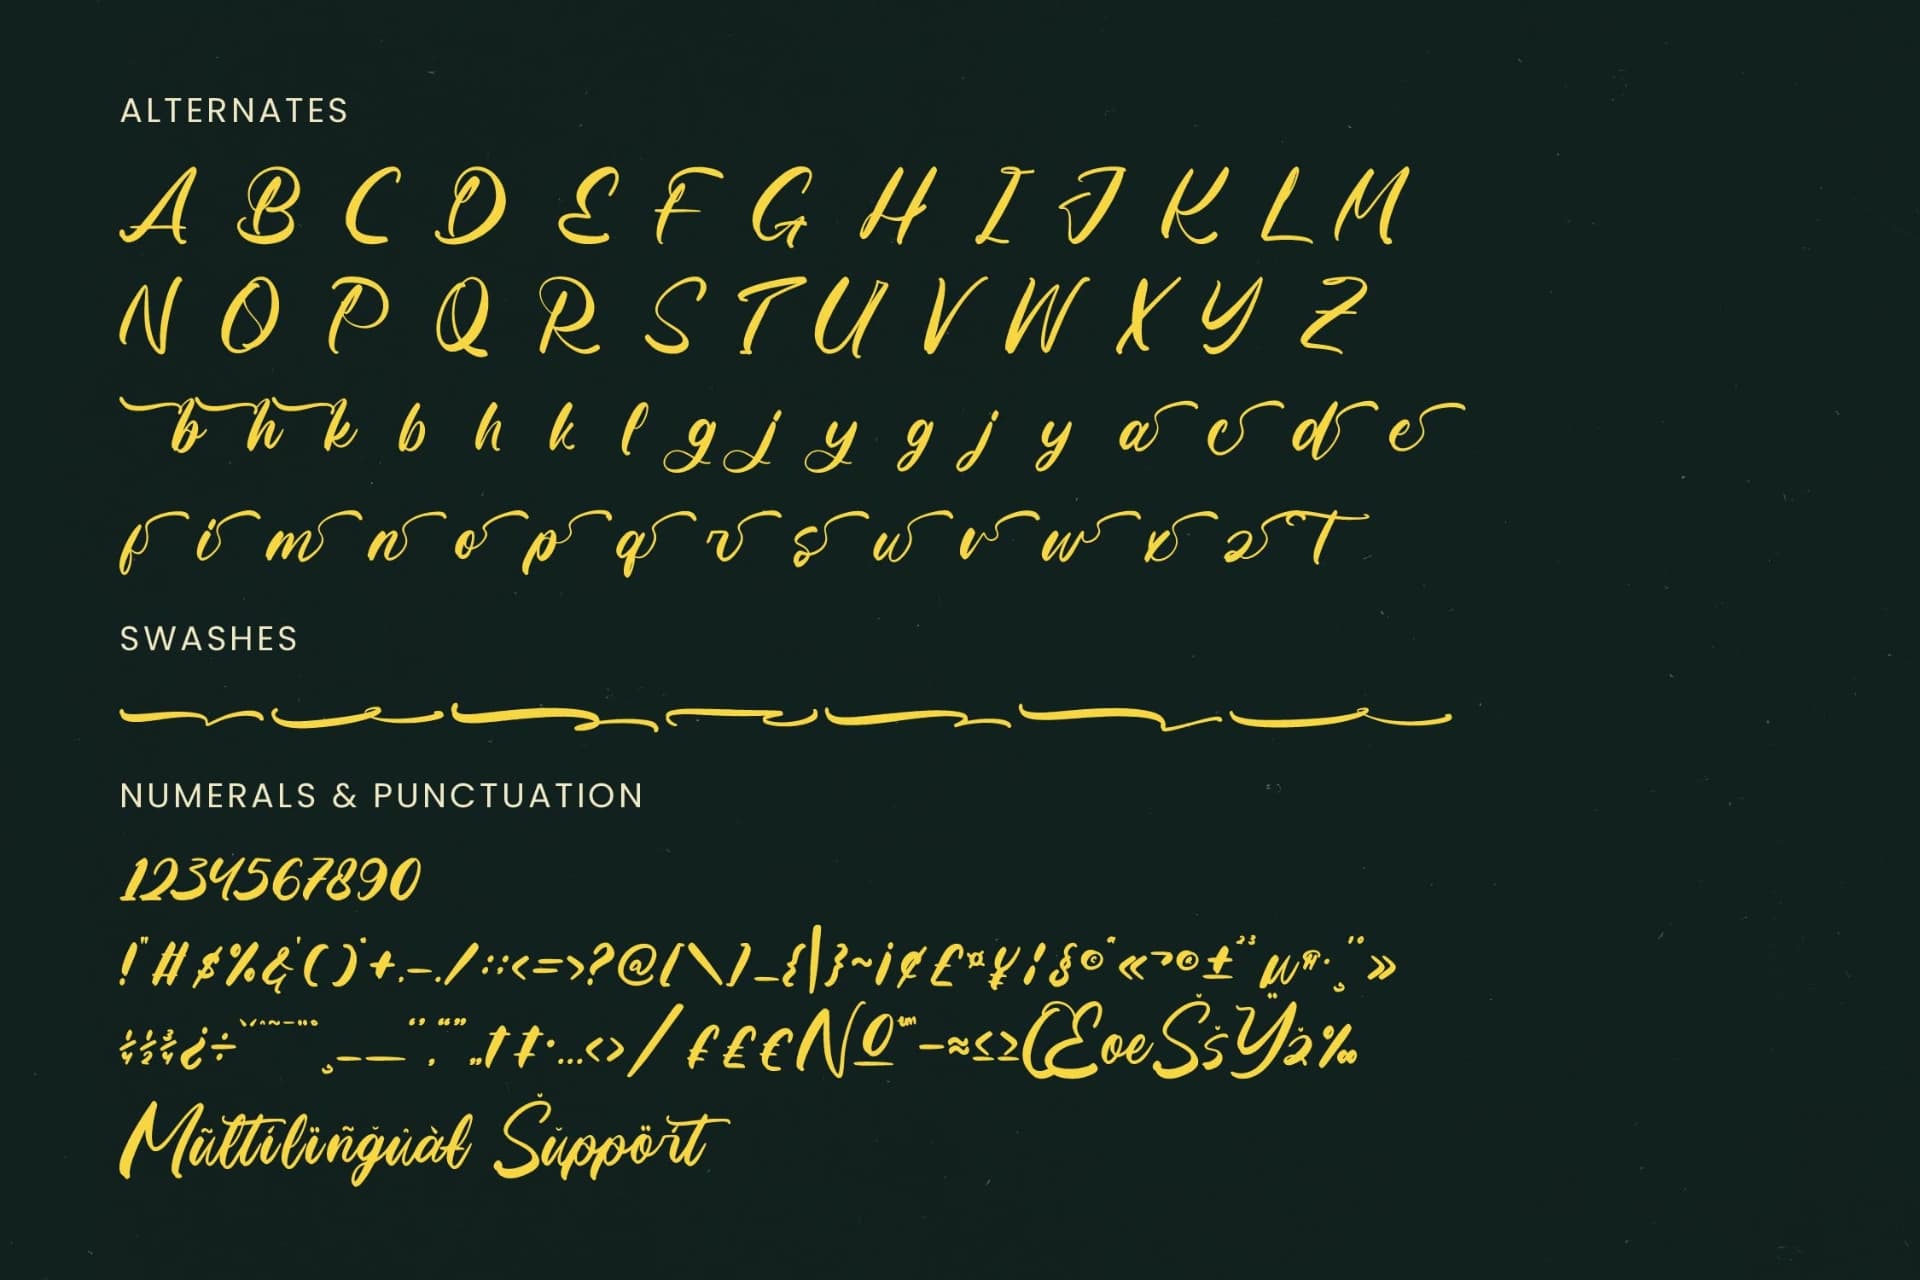 ALTERNATES
A B C D E F G H I J K L M
N O P Q R S T U V W X Y Z
b h k b h k l g j y g j y a c d e
f i m n o p q r s u v w x z T
SWASHES
NUMERALS & PUNCTUATION
1234567890
!"#$%&'()*+,-./:;<=>?@[\]_{|}~¡¢£¤¥¦§©ª«¬®±²³µ¶·¸¹º»
¼½¾¿÷ – — ‘’‚“”„†‡•…<>⁄ ₣₤€№™−≈≤≥ŒœŠšŸž‰
Mũltílïñğûàł Šŭppört